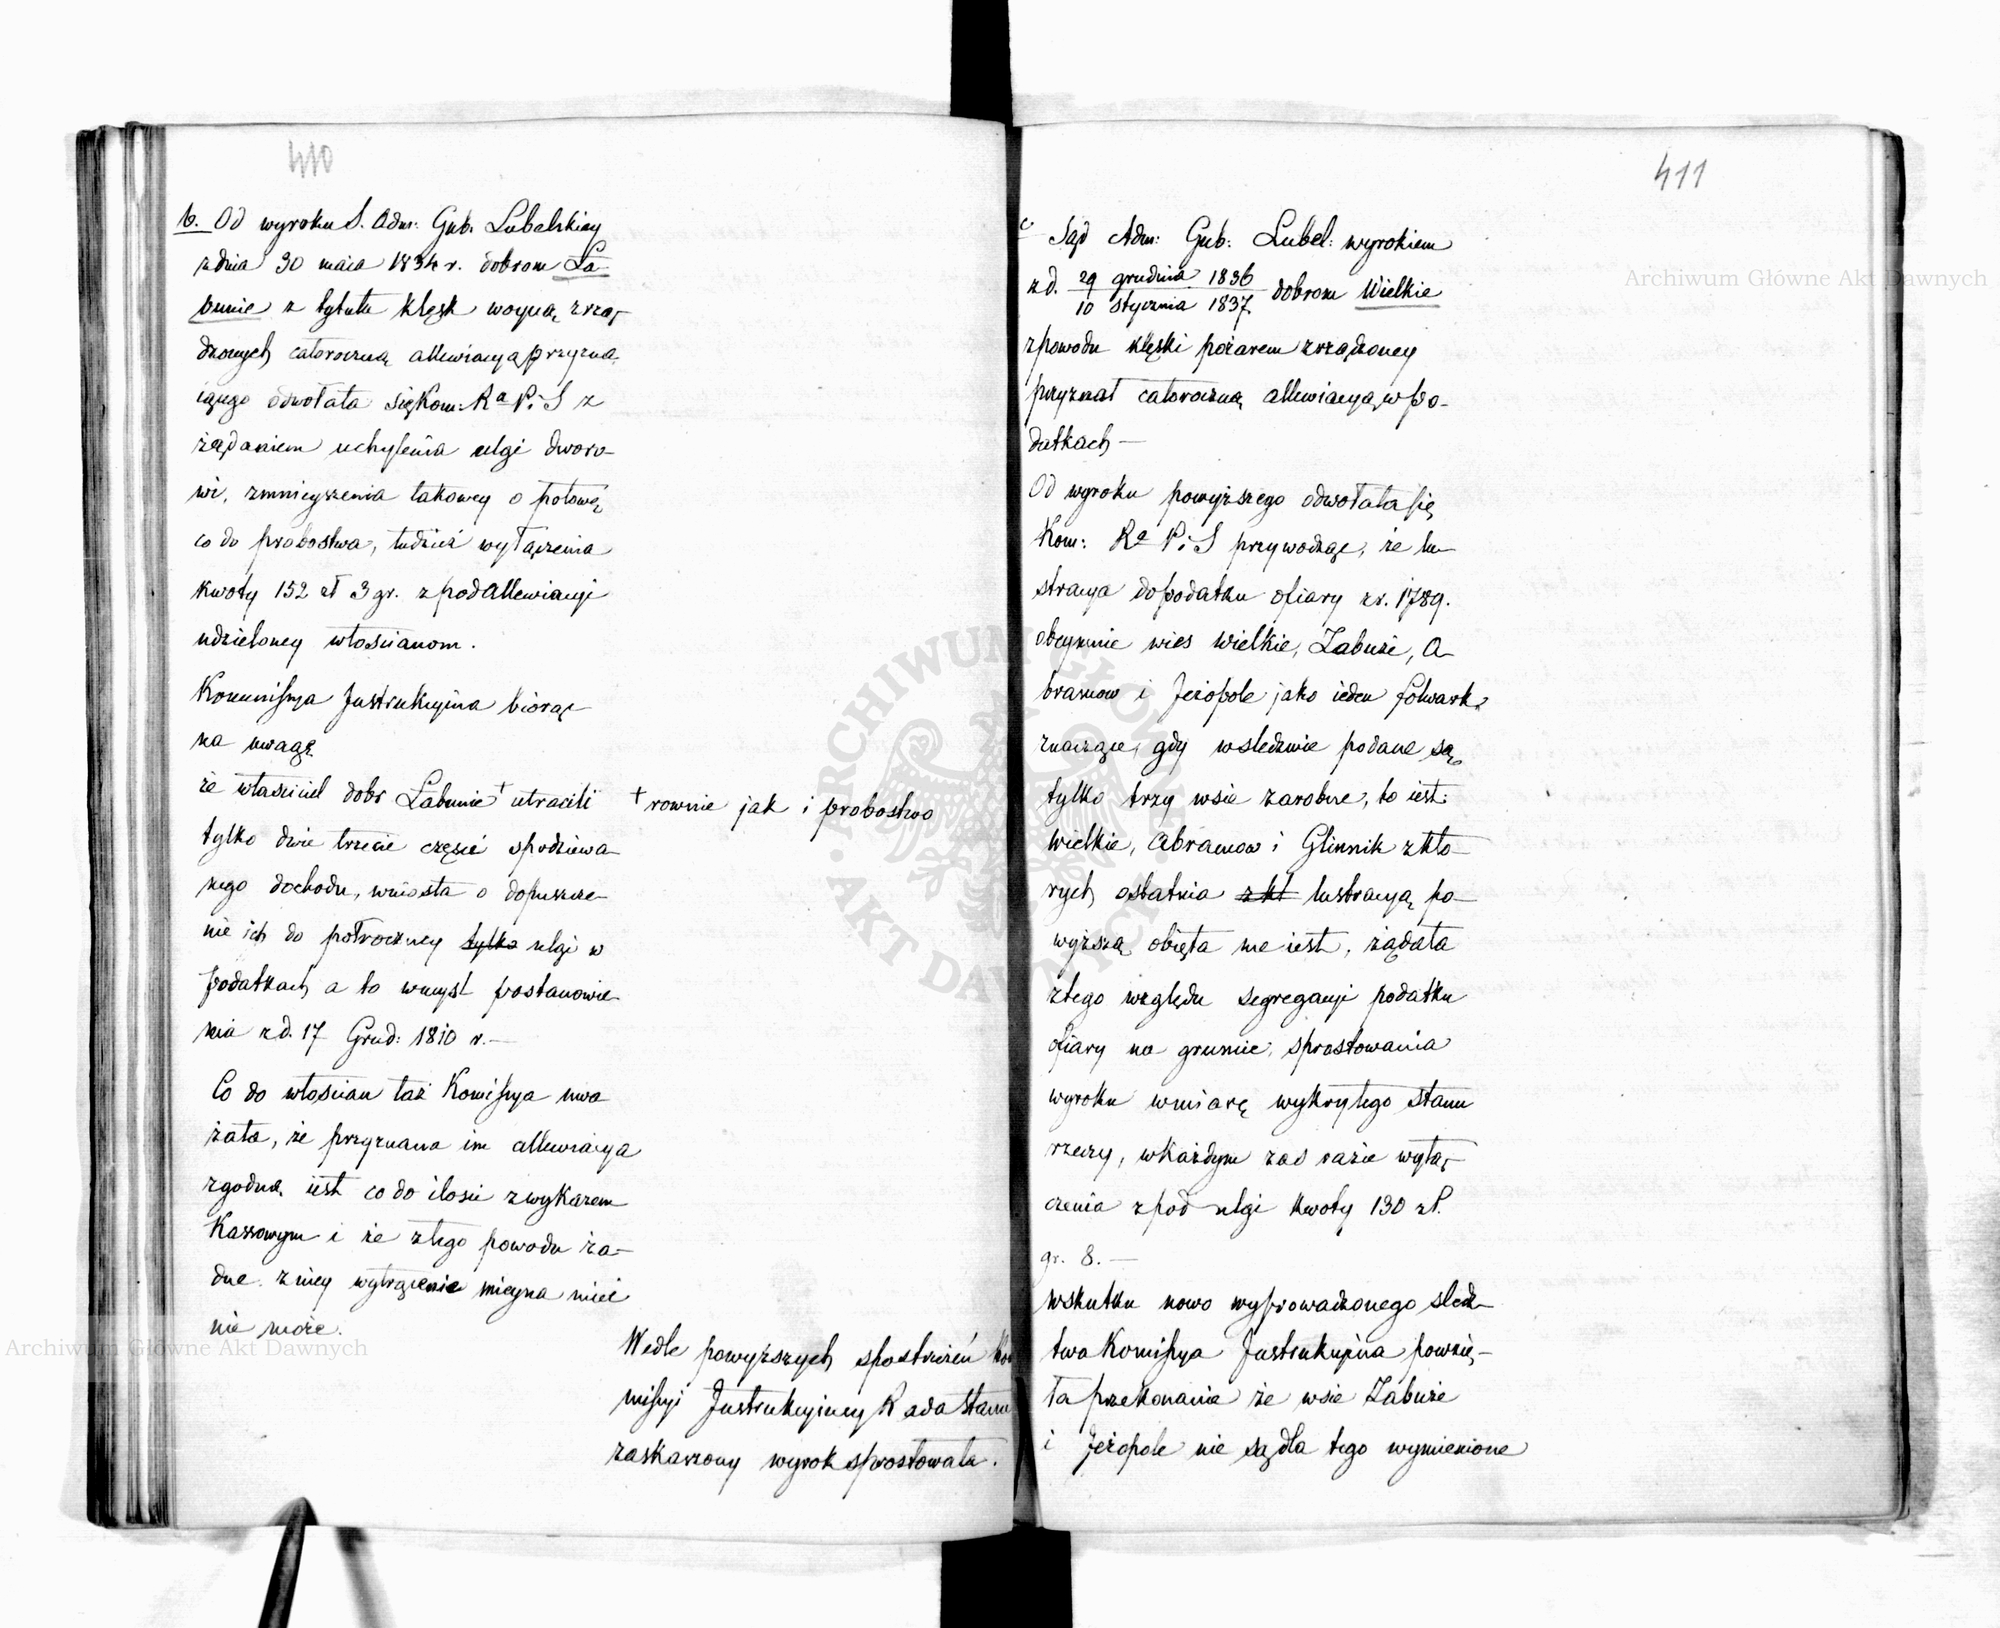 410
b. Od wyroku S. Adm: Gub. Lubelskiey
z dnia 30 maia 1834 r. dobrom Ła-
bunie z tytułu klęsk woyną zrzą-
dzonych całoroczną allewiacyą przyzna-
iącego odwołała się Kom: R.a P. i S z
żądaniem uchylenia ulgi dworo-
wi, zmnieyszenia takowey o połowę
co do probostwa, tudzież wyłączenia
kwoty 152 zł 3 gr. z pod allewiacyi
udzieloney włościanom.
Kommissya Instrukcyina biorąc
na uwagę
że właściciel dobr Łabunie + utracili
+ rownie jak i probostwo
tylko dwie trzecie części spodziewa-
nego dochodu, wniosła o dopuszcze-
nie ich do połroczney tylko ulgi w
podatkach a to wmysl postanowie-
nia z d. 17 Grud: 1810 r. —
Co do włościan taż Komissya uwa
żała, że przyznana im allewiacya
zgodną iest co do ilosci z wykazem
Kassowym i że ztego powodu ża-
dne z niey wytrącenie mieysca mieć
nie może.
Wedle powyższych spostrzeżeń Kom
missyi Instrukcyiney Rada Stanu
zaskarzony wyrok sprostowała.
411
c. Sąd Adm: Gub: Lubel: wyrokiem
z d. 29 grudnia 1836
10 stycznia 1837 dobrom Wielkie
zpowodu klęski pożarem zrządzoney
przyznał całoroczną allewiacyą w po-
datkach —
Od wyroku powyższego odwołała się
Kom: R.a P. i S przywodząc, że lu-
stracya do podatku ofiary z r. 1789.
obeymuie wies Wielkie, Zabuże, A-
bramow i Jeziopole jako ieden folwark
znacząe, gdy w sledztwie podane są
tylko trzy wsie zarobne, to iest:
Wielkie, Abramow i Glinnik z kto-
rych ostatnia z kt lustracyą po-
wyższą obięta nie iest, żądała
ztego względu segregacyi podatku
ofiary na gruncie, sprostowania
wyroku wmiarę wykrytego stanu
rzeczy, wkażdym zas razie wyłą-
czenia z pod ulgi kwoty 130 zł.
gr. 8. —
wskutku nowo wyprowadzonego sledz-
twa Komissya Instrukcyina powzię-
ła przekonanie że wsie Zabuże
i Jeziopole nie są dla tego wymienione
Archiwum Główne Akt Dawnych
Archiwum Główne Akt Dawnych
ARCHIWUM GŁÓWNE AKT DAWNYCH